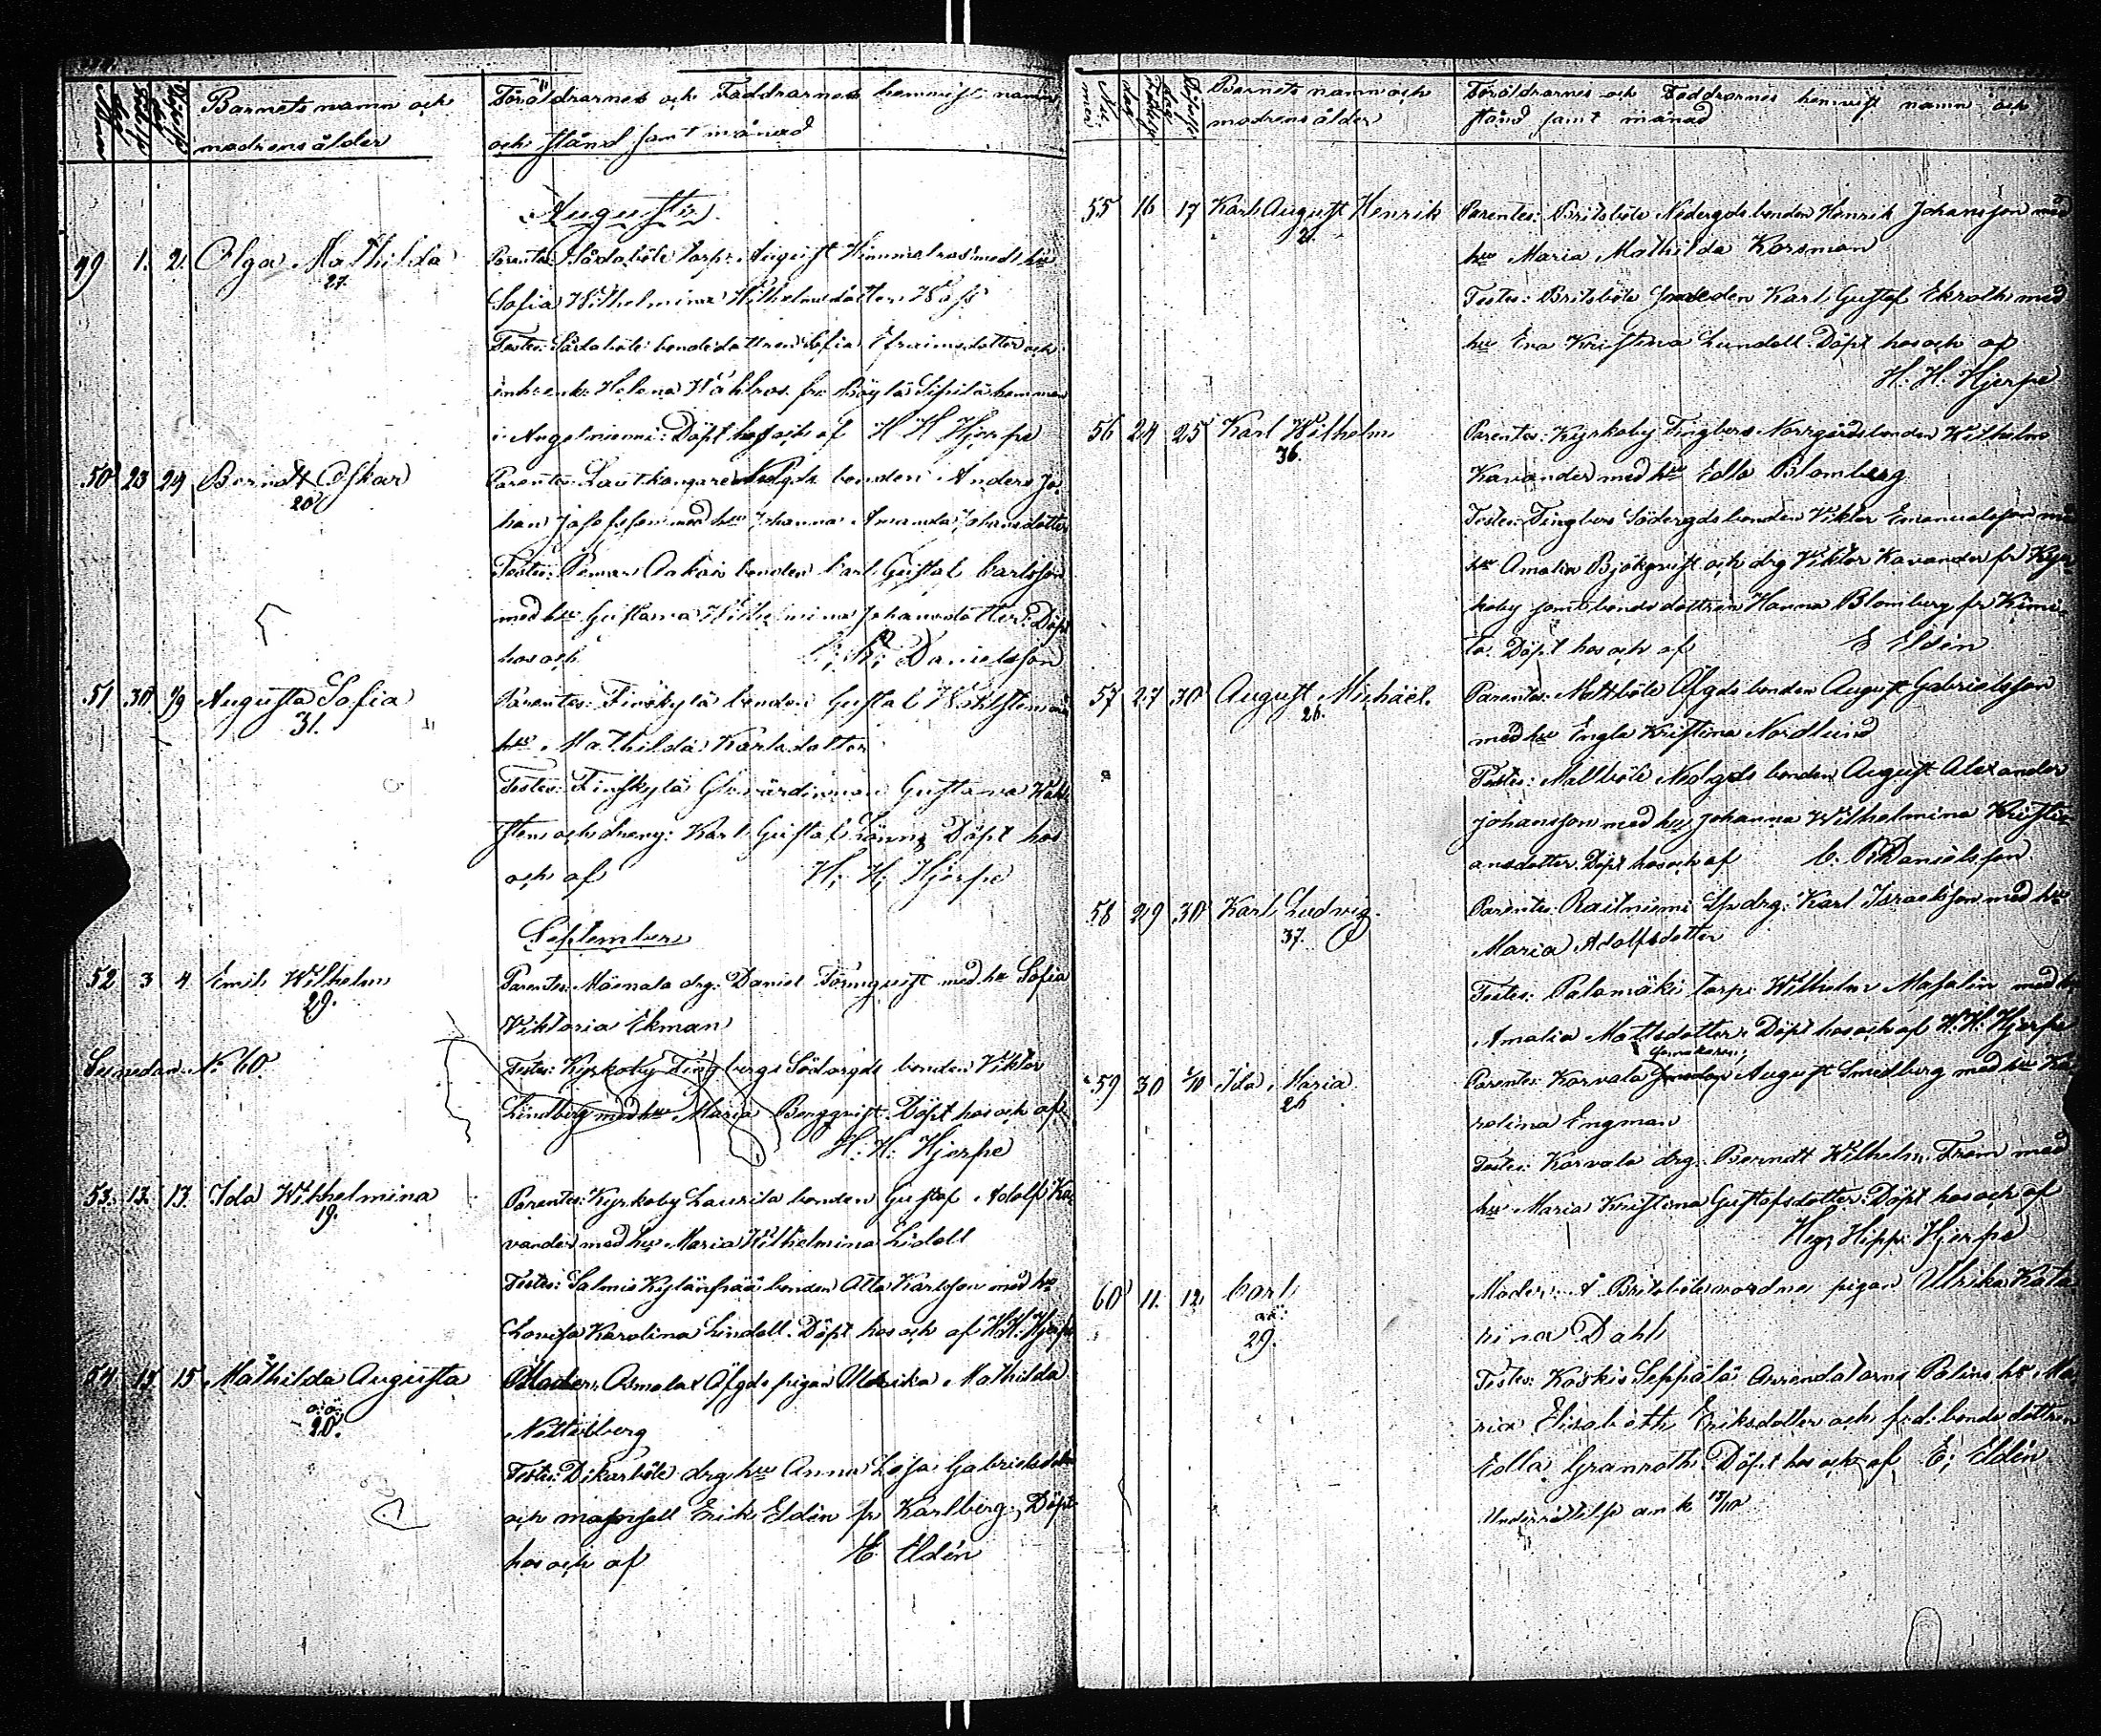 Barnets namn och
modrens ålder
Föräldrarnes och Faddrarnes hemvist namn
och stånd samt månad
Augusti
49 1. 2. Olga Mathilda
27.
Parentes: torp: August Himmelroos med hu
Sofia Wilhelmina Wilhelmsdotter
Testes: bondedottren Sofia Efraimsdotter och
enk: Helena Wahlroos fr.
i Angelniemi: Döpt hos och af H H Hjerpe
50 23 24 Berndt Oskar
20
Parentes: bonden Anders Jo-
han Josefsson med hu Johanna Amanda Johansdotter
Testes: Pemar bonden Carl Gustaf Carlsson
med hu Gustava Wilhelmina Johansdotter: Döpt
hos och C. R: Danielsson
51 30. 1/9 Augusta Sofia
31.
Parentes: Finskylä bonden Gustaf
hu Mathilda Karlsdotter
Testes: Finskylä Gustava Wahl
sten och dreng: Karl Gustaf Lönn; Döpt hos
och af H; H; Hjerpe
September
52 3 4 Emil Wilhelm
29.
Parentes: Moenala drg: Daniel Törnquist med hu Sofia
Viktoria Ekman
Se nedan No 60
Testes: Kyrkoby Tingbergs Södergds bonden Viktor
Lindberg med hu Maria Bergqvist. Döpt hos och af
H. H. Hjerpe
53. 13. 13. Ida Wilhelmina
19.
Parentes: Kyrkoby Laurila bonden Gustaf Adolf Ka-
vander med hu Maria Wilhelmina Lidell
Testes: Salmis Kylänpää bonden Otto Karlsson med hu
Lovisa Karolina Lindell. Döpt hos och af H.H. Hjerpe
54 15 Mathilda Augusta
o:ä:
20.
Moder: Asmala Öfgds pigan Ulrika Mathilda
Netterberg
Testes: Dikarböle drg hu Anna Lisa Gabrielsdotter
och Erik Eldén fr Karlberg, Döpt
hos och af E. Eldén
Barnets namn och
modrens ålder
Föräldrarnes och Faddrarnes hemvist namn och
stånd samt månad
55 16 17 Karl August Henrik
21.
Parentes: Britsböle Nedergds bonden Henrik Johansson med
hu Maria Mathilda Korsman
Testes: Britsböle Karl Gustaf Ekroth med
hu Eva Kristina Lundell. Döpt hos och af
H: H: Hjerpe
56 24 25 Karl Wilhelm
36.
Parentes: Kyrkoby Tingbers Norrgårds bonden Wilhelm
Kavander med hu Edla Blomberg
Testes: Tingbers Södergds bonden Viktor Emanuelsson med
hu Amalia Björkqvist och drg Viktor Kavander fr Kyr-
koby samt bonde dottren Hanna Blomberg fr Kimi-
to. Döpt hos och af E Eldén
57 27 30 August Michaël.
26.
Parentes: Mattböle Öfgds bonden August Gabrielsson
med hu Engla Kristina Nordlund
Testes: Mattböle Nedgds bonden August Alexander
Johansson med hu Johanna Wilhelmina Kristi-
ansdotter. Döpt hos och af C. R. Danielsson
58 29 30 Karl Ludvig.
37.
Parentes: Raitniemi drg: Karl Israelsson med hu
Maria Adolfsdotter
Testes: Palomäki torp: Wilhelm Masalin med hu
Amalia Mattsdotter. Döpt hos och af H: H: Hjerpe
59 30 1/10 Ida Maria
26
Parentes: Korvala August Smedberg med hu Ka-
rolina Engman
Testes: Korvala drg. Berndt Wilhelm Fram med
hu Maria Kristina Gustafsdotter. Döpt hos och af
Hjerpe
60 11. 12. Carl
oä:
29.
Moder: Å Britsböle pigan Ulrika Kata-
rina Dahl
Testes: Koskis Seppälä Arrendatorns Palins hu Ma-
ria Elisabeth Eriksdotter och f:d: bonde dottren
Edla Granroth. Döpt hos och af E; Eldén
Underrättelse ank 15/10